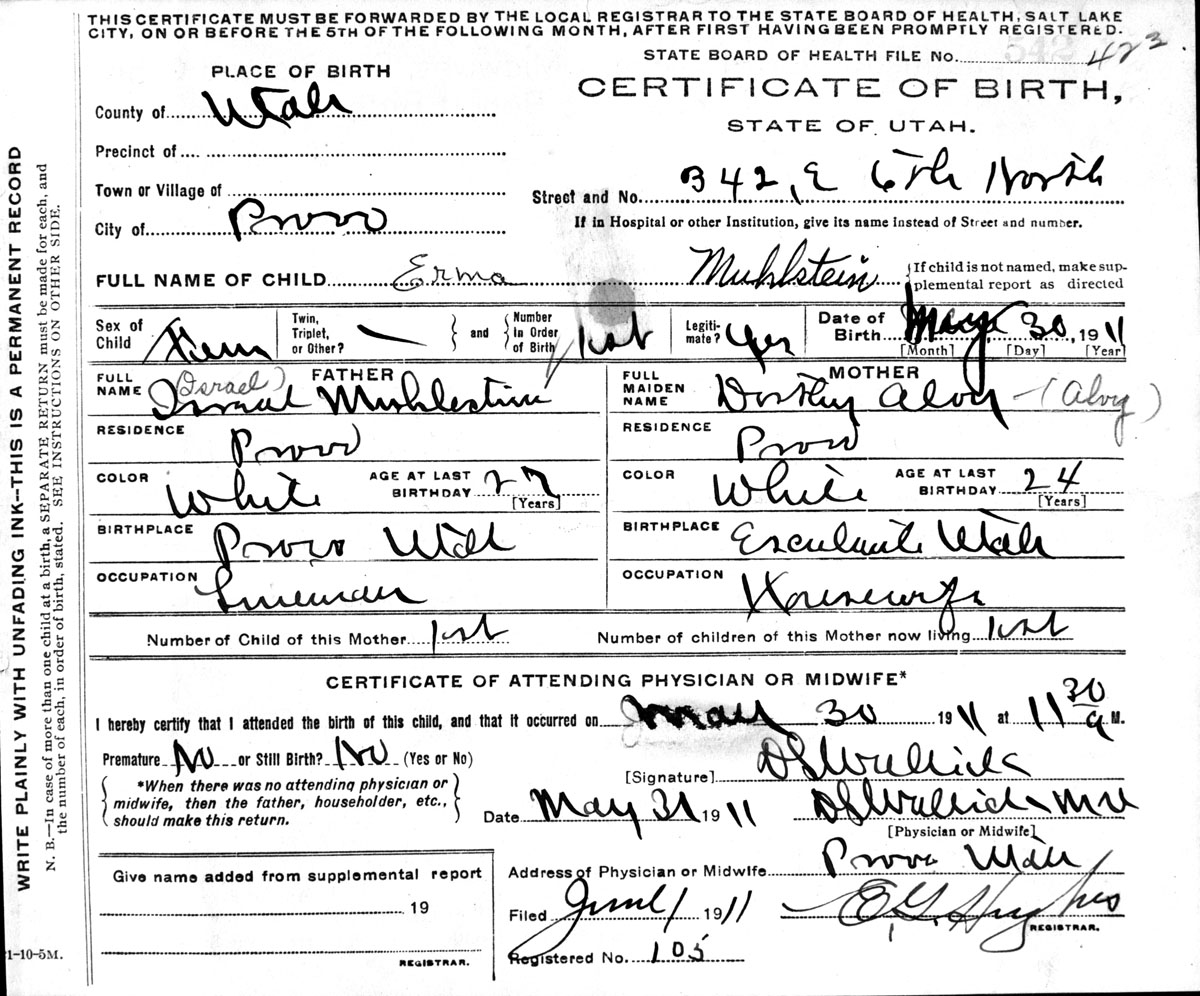 THIS CERTIFICATE MUST BE FORWARDED BY THE LOCAL REGISTRAR TO THE STATE BOARD OF HEALTH, SALT LAKE
CITY, ON OR BEFORE THE 5TH OF THE FOLLOWING MONTH, AFTER FIRST HAVING BEEN PROMPTLY REGISTERED.
STATE BOARD OF HEALTH FILE No. 542 423
PLACE OF BIRTH
CERTIFICATE OF BIRTH,
STATE OF UTAH.
County of Utah
Precinct of
Town or Village of
Street and No. 342, E 6th North
City of Provo
If in Hospital or other Institution, give its name instead of Street and number.
FULL NAME OF CHILD Erma Muhlstein {If child is not named, make sup-
plemental report as directed
Sex of Child Fem
Twin, Triplet, or Other? —
and
Number in Order of Birth 1st
Legiti-mate? Yes
Date of Birth May 30, 1911
[Month] [Day] [Year]
FATHER
FULL NAME (Israel)
Muhlestin
RESIDENCE Provo
COLOR White AGE AT LAST BIRTHDAY 27 [Years]
BIRTHPLACE Provo Utah
OCCUPATION Lineman
MOTHER
FULL MAIDEN NAME Dorthy Alvy - (Alvy)
RESIDENCE Provo
COLOR White AGE AT LAST BIRTHDAY 24 [Years]
BIRTHPLACE Esculante Utah
OCCUPATION Housewife
Number of Child of this Mother 1st Number of children of this Mother now living 1st
CERTIFICATE OF ATTENDING PHYSICIAN OR MIDWIFE*
I hereby certify that I attended the birth of this child, and that it occurred on May 30 1911 at 11 30 a M.
Premature No or Still Birth? No (Yes or No)
[Signature]
*When there was no attending physician or
midwife, then the father, householder, etc.,
should make this return.
Date May 31 1911
[Physician or Midwife]
Address of Physician or Midwife Provo Utah
Give name added from supplemental report
19
REGISTRAR.
Filed June 1 1911 E. G. Hughes
REGISTRAR.
Registered No. 105
WRITE PLAINLY WITH UNFADING INK--THIS IS A PERMANENT RECORD
N. B.—In case of more than one child at a birth, a SEPARATE RETURN must be made for each, and
the number of each, in order of birth, stated. SEE INSTRUCTIONS ON OTHER SIDE.
1-10-5M.